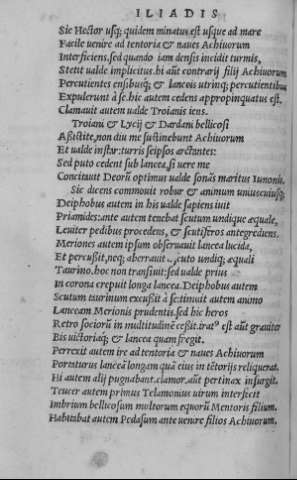 ILIADIS
Sic Hector usq; quidem minatus est usque ad mare
Facile uenire ad tentoria & naues Achiuorum
Interficiens, sed quando iam densis incidit turmis,
Stetit ualde implicitus. hi aũt contrarij filij Achiuorum
Percutientes ensibuq; & lanceis utrinq; percutientibus
Expulerunt à se. hic autem cedens appropinquatus est,
Clamauit autem ualde Troianis iens.
Troiani & Lycij & Dardani bellicosi
Assistite, non diu me sustinebunt Achiuorum
Et ualde instar: turris seipsos arctantes:
Sed puto cedent sub lancea, si uere me
Concitauit Deorũ optimus ualde sonãs maritus Iunonis.
Sic dicens commouit robur & animum uniuscuiusq;
Deiphobus autem in his ualde sapiens iuit
Priamides: ante autem tenebat scutum undique æquale,
Leuiter pedibus procedens, & scutiferos antegrediens.
Meriones autem ipsum obseruauit lancea lucida,
Et percußit, neq; aberrauit scuto undiq; æquali
Taurino. hoc non transiuit: sed ualde prius
In corona crepuit longa lancea. Deiphobus autem
Scutum taurinum excußit à se: timuit autem animo
Lanceam Merionis prudentis. sed hic heros
Retro sociorũ in multitudinẽ ceßit. irat⁹ est aũt grauiter
Bis uictoriaq; & lancea quam fregit.
Perrexit autem ire ad tentoria & naues Achiuorum
Portaturus lanceã longam quã eius in tẽtorijs reliquerat.
Hi autem alij pugnabant, clamor, aũt pertinax insurgit.
Teucer autem primus Telamonius uirum interfecit
Imbrium bellicosum multorum equorũ Mentoris filium.
Habitabat autem Pedasum ante uenire filios Achiuorum.